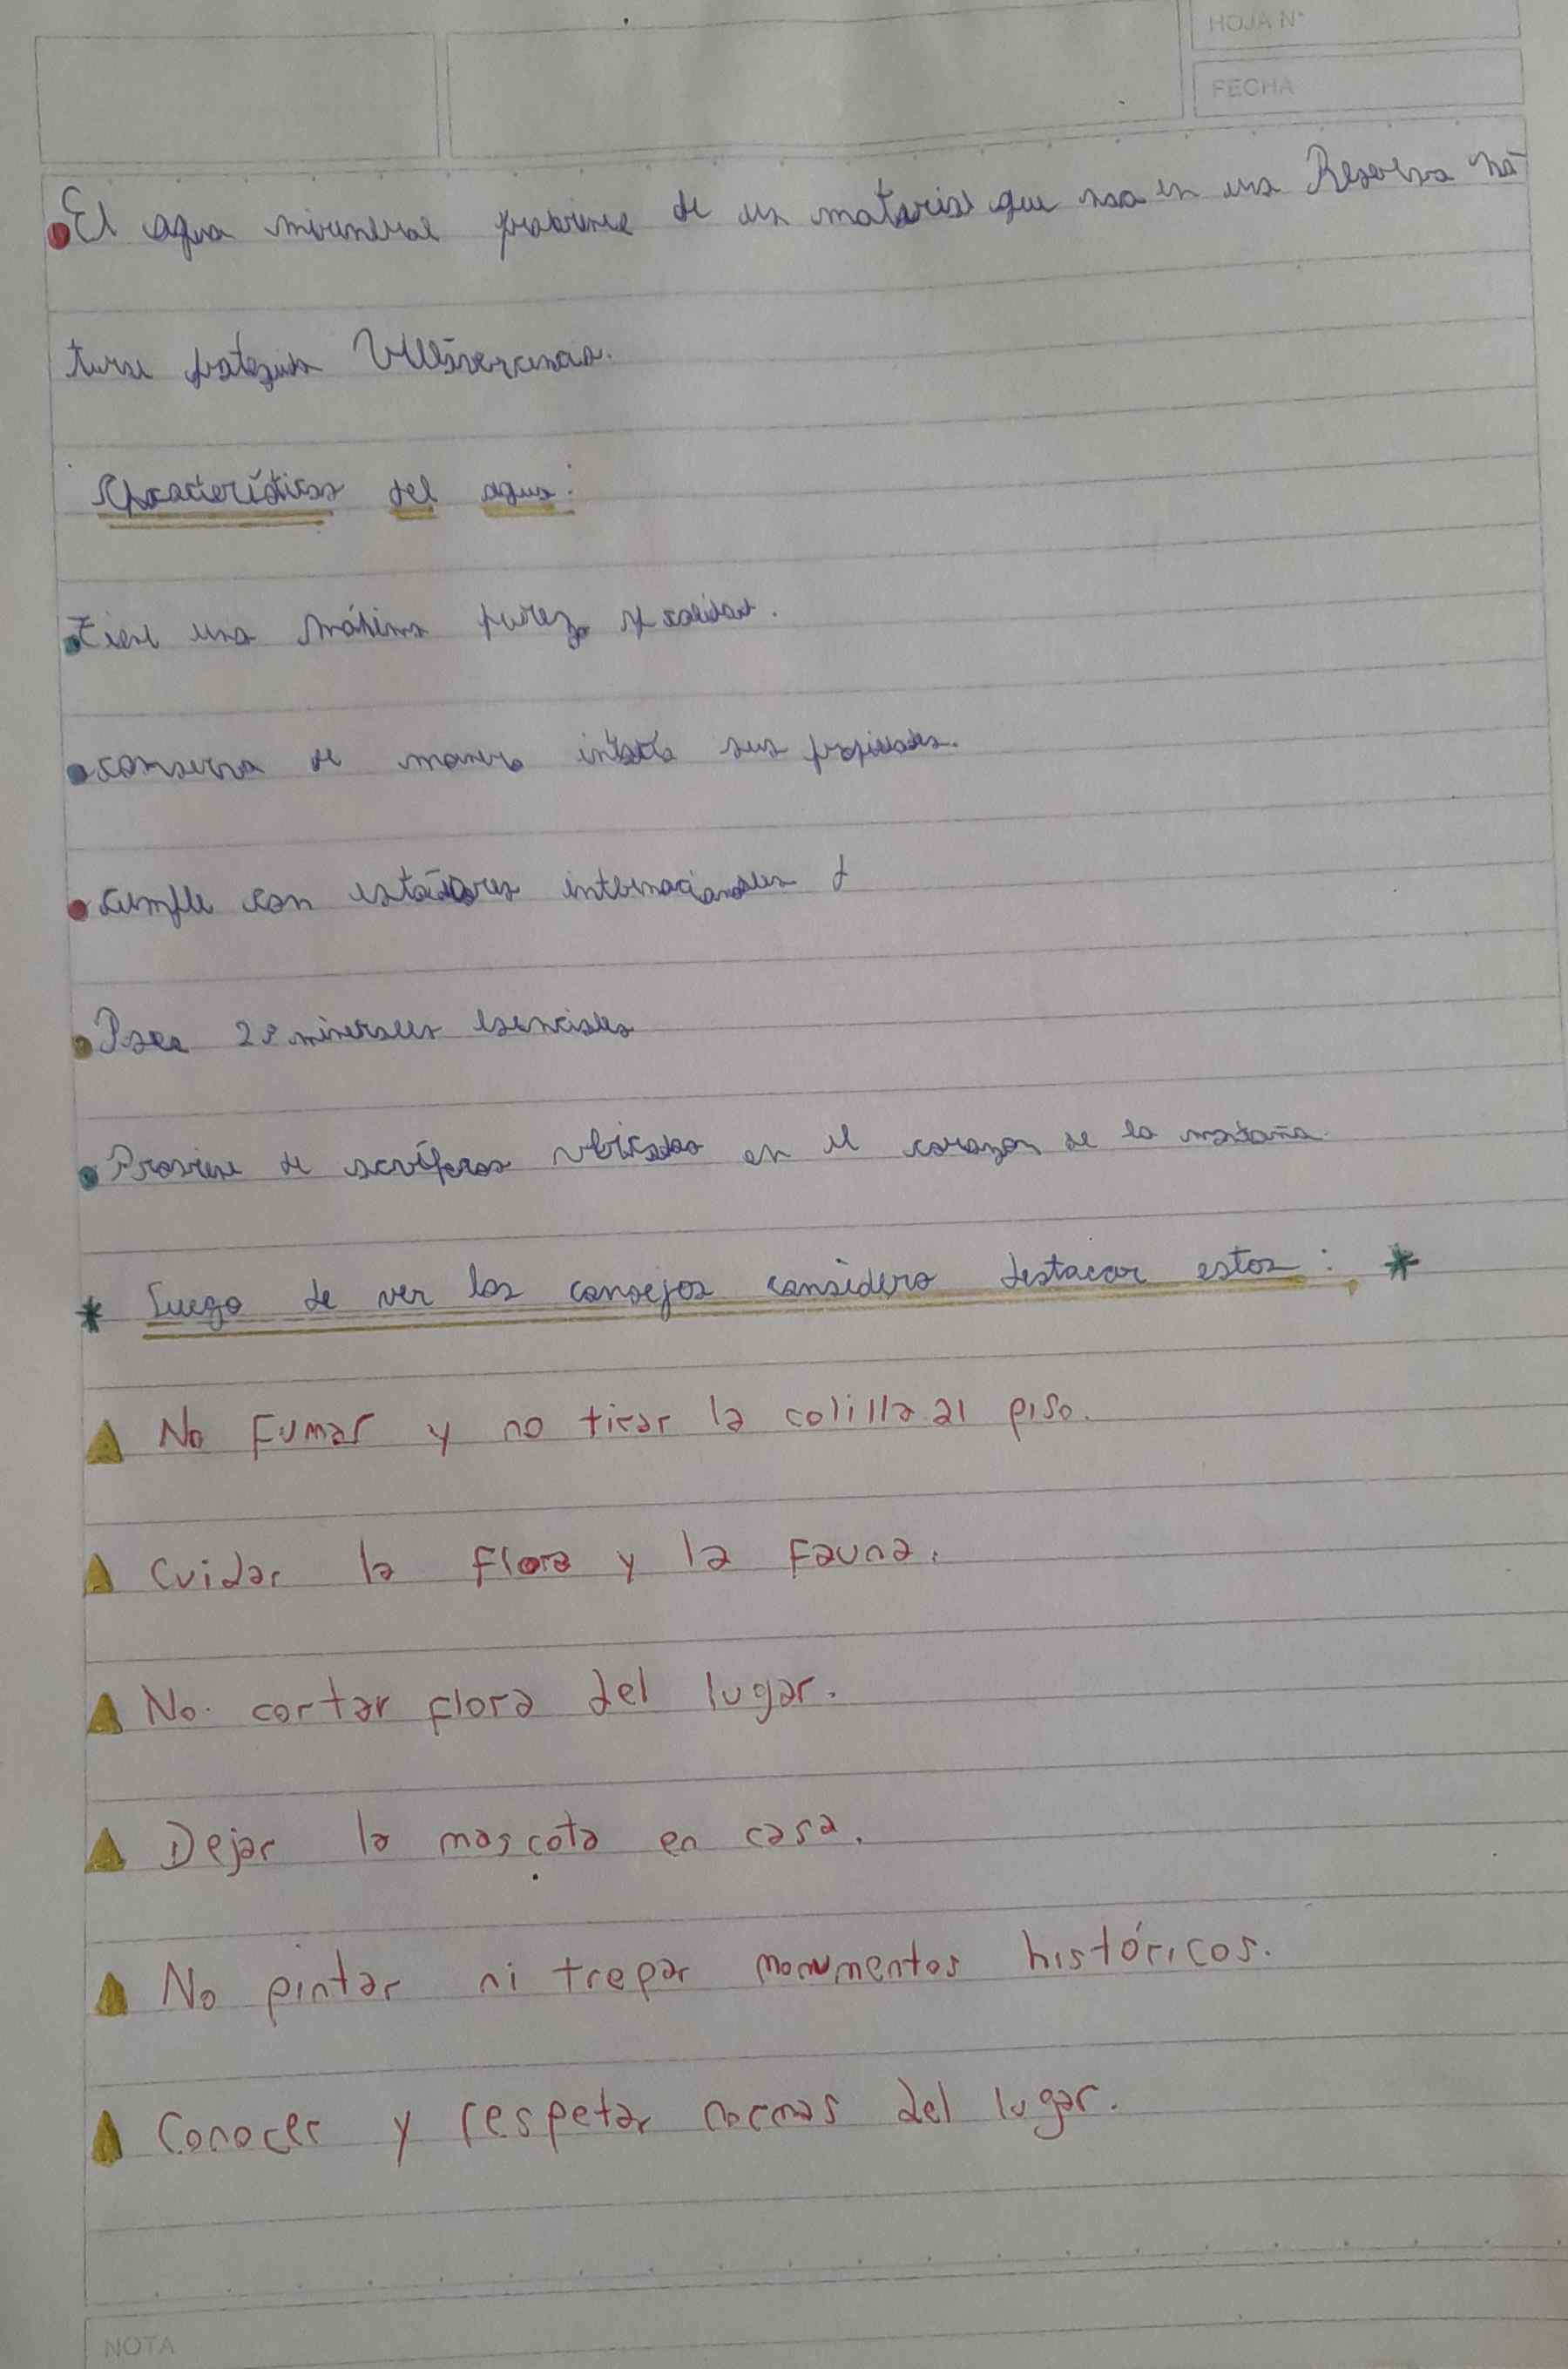 HOJA N°
FECHA
El agua miuneral proviene de un material que nsa en una Reserva na
tural Villavicencio.
Características del agua:
Tiene una máxima pureza y calidad.
conserva de manera intacta sus propiedades.
cumple con estándares internacionales
Posee minerales esenciales
Proviene de acuíferos ubicados en el corazon de la montaña.
* Luego de ver los consejos considero destacar estos: *
No Fumar y no tirar la colilla al piso.
Cuidar la flora y la Fauna.
No. cortar flora del lugar.
Dejar la mascota en casa.
No pintar ni trepar monumentos históricos.
Conocer y respetar normas del lugar.
NOTA